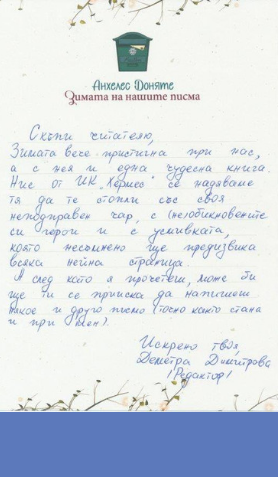 Анхелес Доняте
Зимата на нашите писма
Скъпи читателю,
Зимата вече пристигна при нас,
а с нея и една чудесна книга.
Ние от ИК „Хермес“ се надяваме
тя да те стопли със своя
неподправен чар, с (не)обикновените
си герои и с усмивката,
която несъмнено ще предизвика
всяка нейна страница.
А след като я прочетеш, може би
ще ти се прииска да напишеш
някое и друго писмо (точно както стана
и при мен).
Искрено твоя,
Деметра Димитрова
/Редактор/